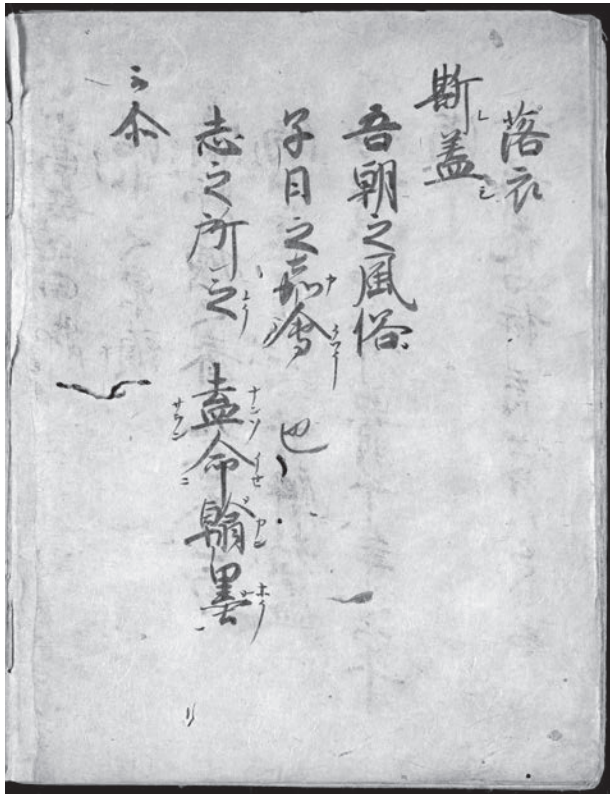 落衣
斯盖
吾朝之風俗
子日之嘉會也
志之所之 盍命翰墨
云尒